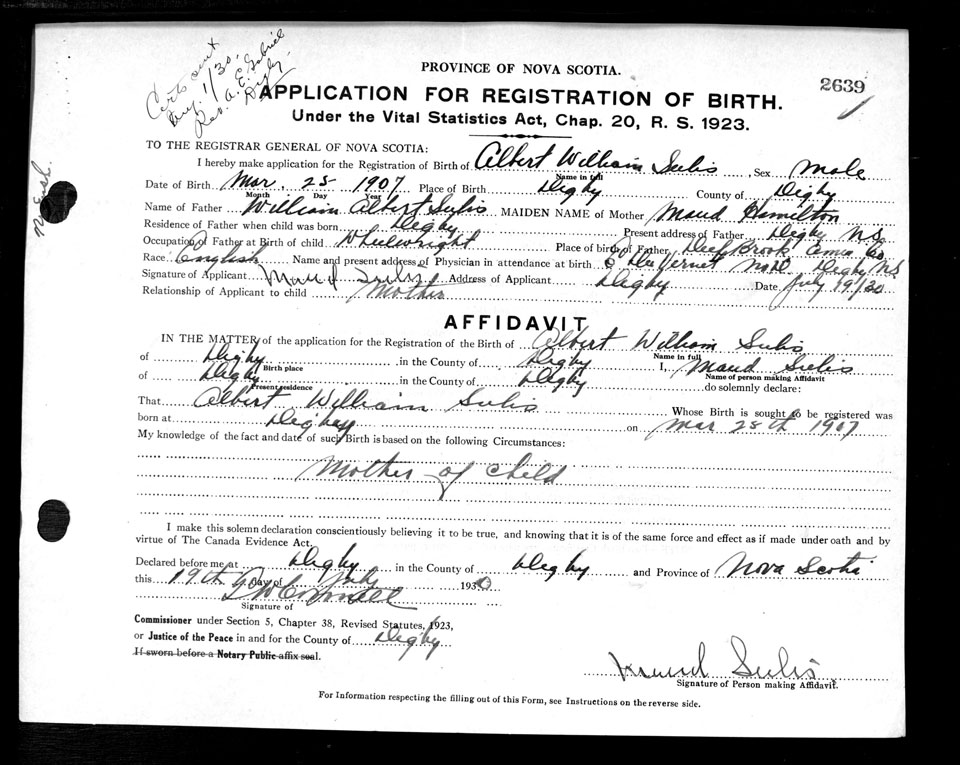 Certs sent
Aug. 1/30.
Rev. A. E. Gabriel
Digby
PROVINCE OF NOVA SCOTIA.
2639
APPLICATION FOR REGISTRATION OF BIRTH.
Under the Vital Statistics Act, Chap. 20, R. S. 1923.
TO THE REGISTRAR GENERAL OF NOVA SCOTIA:
I hereby make application for the Registration of Birth of Albert William Sulis Sex Male
Name in full
Date of Birth Mar. 28 1907 Place of Birth Digby County of Digby
Month Day Year
Name of Father William Albert Sulis MAIDEN NAME of Mother Maud Hamilton
Residence of Father when child was born Digby Present address of Father Digby N.S.
Occupation of Father at Birth of child Wheelwright Place of birth of Father Deep Brook Co
Race English Name and present address of Physician in attendance at birth Digby N.S
Signature of Applicant Maud Sulis Address of Applicant Digby Date July 19/30
Relationship of Applicant to child Mother
AFFIDAVIT
IN THE MATTER of the application for the Registration of the Birth of Albert William Sulis
Name in full
of Digby in the County of Digby I, Maud Sulis
Birth place Name of person making Affidavit
of Digby in the County of Digby do solemnly declare:
Present residence
That Albert William Sulis Whose Birth is sought to be registered was
born at Digby on Mar 28th 1907
My knowledge of the fact and date of such Birth is based on the following Circumstances:
Mother of Child
I make this solemn declaration conscientiously believing it to be true, and knowing that it is of the same force and effect as if made under oath and by
virtue of The Canada Evidence Act.
Declared before me at Digby in the County of Digby and Province of Nova Scotia
this 19th Day of July 1930
Signature of
Commissioner under Section 5, Chapter 38, Revised Statutes, 1923,
or Justice of the Peace in and for the County of Digby
If sworn before a Notary Public affix seal.
Maud Sulis
Signature of Person making Affidavit.
For Information respecting the filling out of this Form, see Instructions on the reverse side.